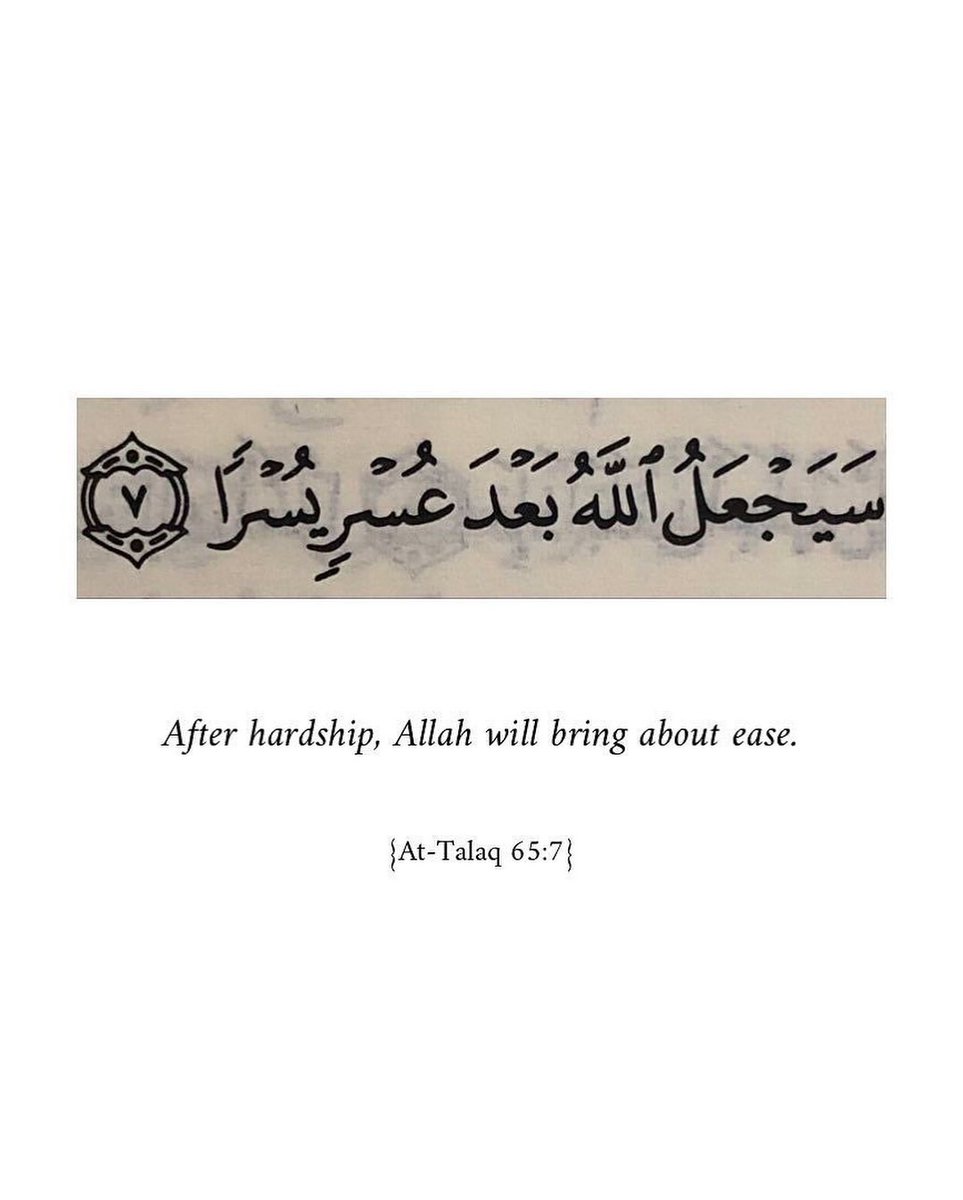 سَيَجْعَلُ ٱللَّهُ بَعْدَ عُسْرٍ يُسْرًا ٧
After hardship, Allah will bring about ease.
{At-Talaq 65:7}